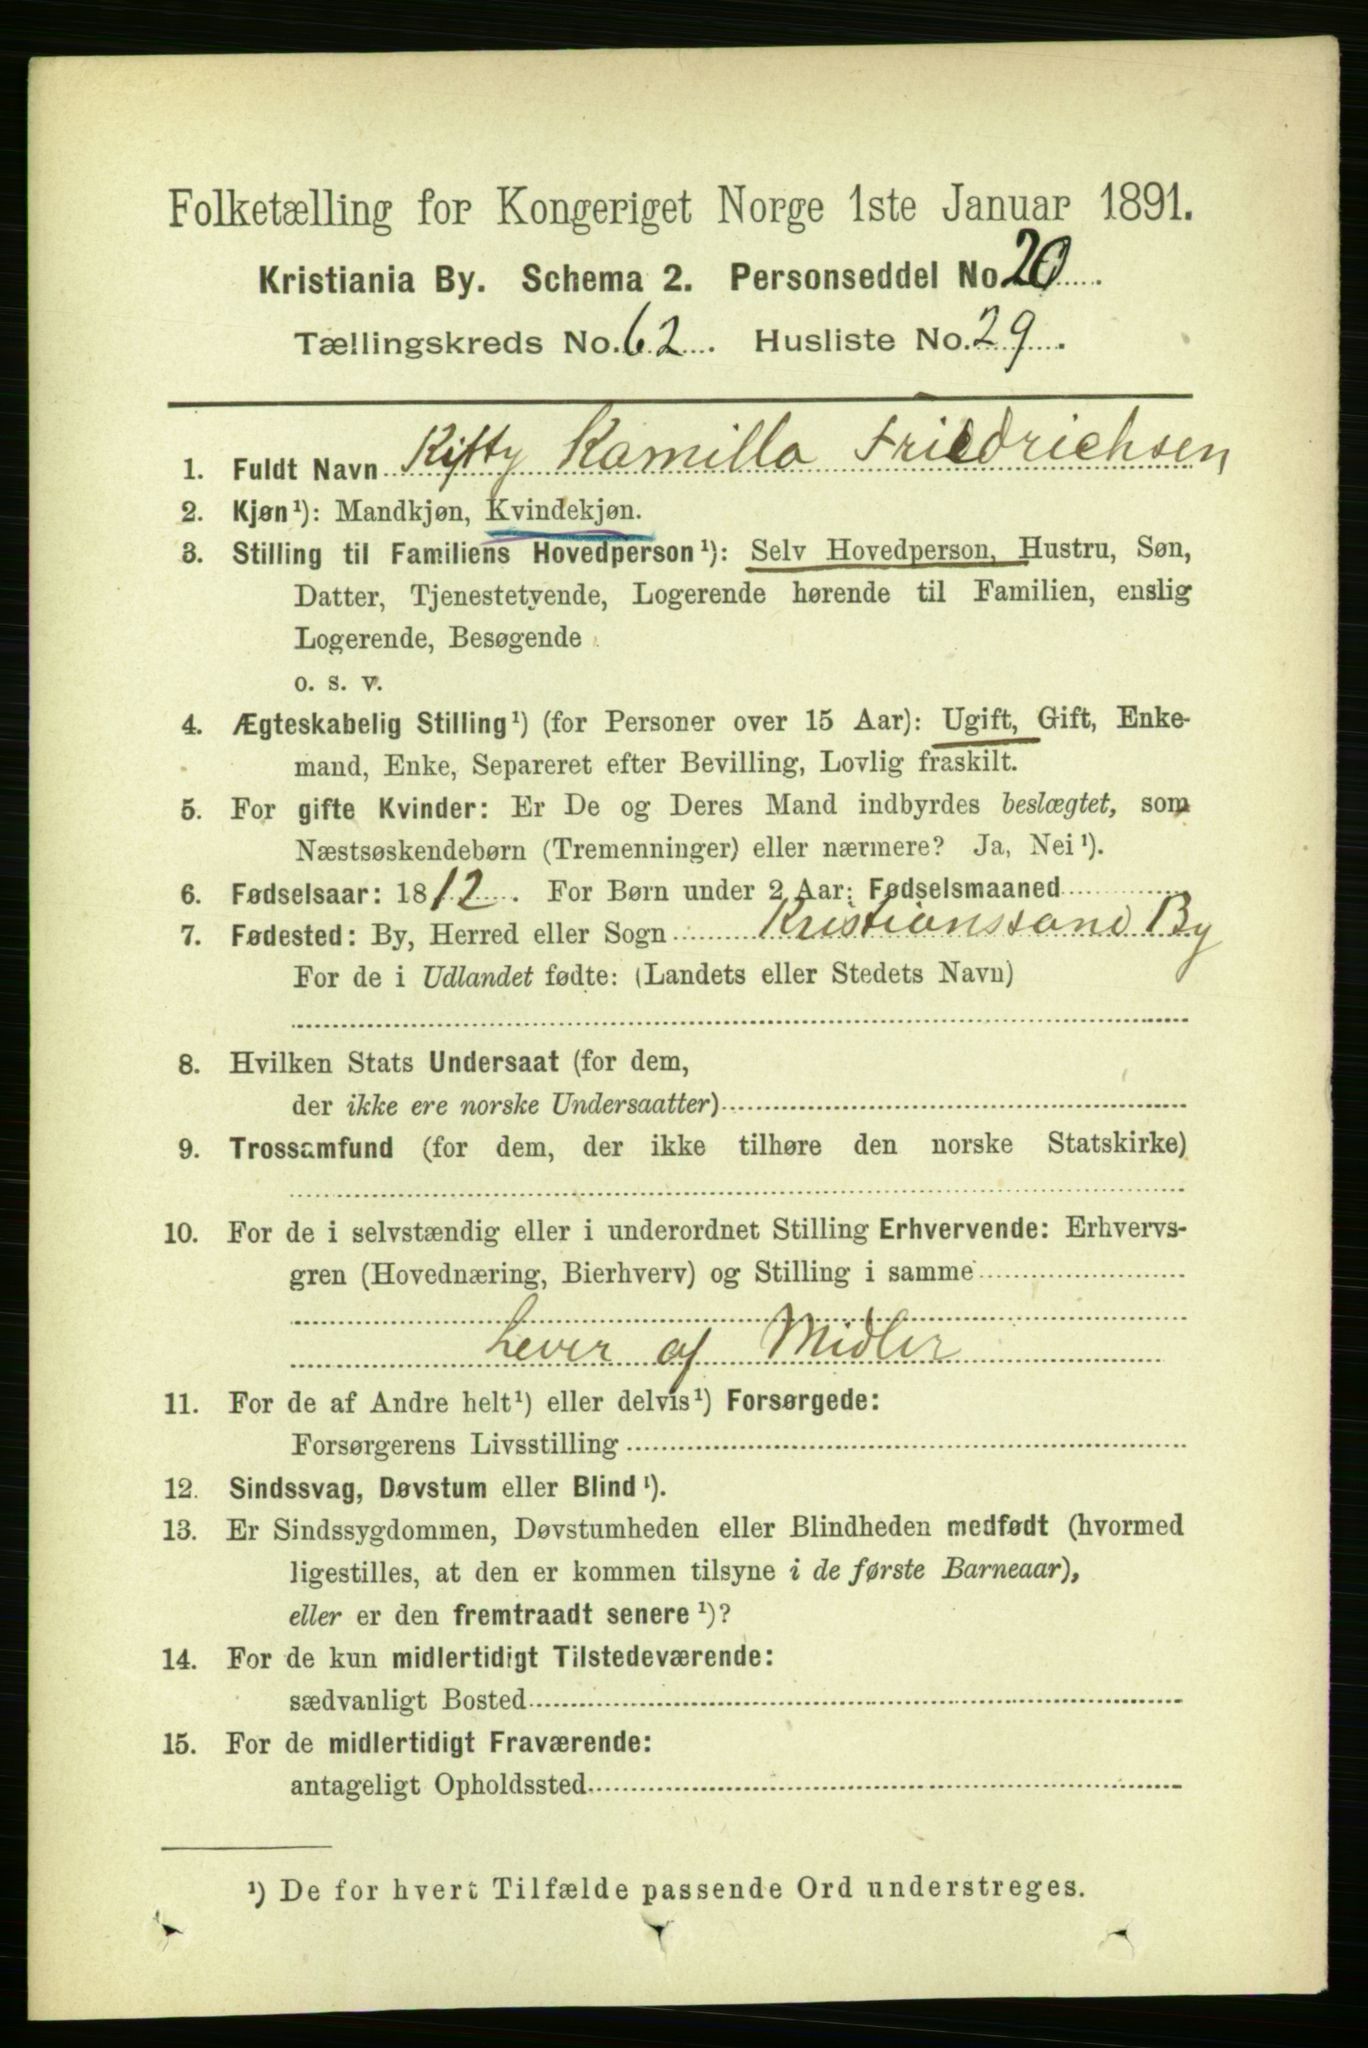 Folketælling for Kongeriget Norge 1ste Januar 1891.
Kristiania By. Schema 2. Personseddel No 20
Tællingskreds No. 62. Husliste No. 29.
1. Fuldt Navn Kitty Kamilla Friedrichsen
2. Kjøn¹): Mandkjøn, Kvindekjøn.
3. Stilling til Familiens Hovedperson¹): Selv Hovedperson, Hustru, Søn,
Datter, Tjenestetyende, Logerende hørende til Familien, enslig
Logerende, Besøgende
o. s. v.
4. Ægteskabelig Stilling¹) (for Personer over 15 Aar): Ugift, Gift, Enke-
mand, Enke, Separeret efter Bevilling, Lovlig fraskilt.
5. For gifte Kvinder: Er De og Deres Mand indbyrdes beslægtet, som
Næstsøskendebørn (Tremenninger) eller nærmere? Ja, Nei¹).
6. Fødselsaar: 1812. For Børn under 2 Aar: Fødselsmaaned
7. Fødested: By, Herred eller Sogn Kristianssand By
For de i Udlandet fødte: (Landets eller Stedets Navn)
8. Hvilken Stats Undersaat (for dem,
der ikke ere norske Undersaatter)
9. Trossamfund (for dem, der ikke tilhøre den norske Statskirke)
10. For de i selvstændig eller i underordnet Stilling Erhvervende: Erhvervs-
gren (Hovednæring, Bierhverv) og Stilling i samme
Lever af Midler
11. For de af Andre helt¹) eller delvis¹) Forsørgede:
Forsørgerens Livsstilling
12. Sindssvag, Døvstum eller Blind¹).
13. Er Sindssygdommen, Døvstumheden eller Blindheden medfødt (hvormed
ligestilles, at den er kommen tilsyne i de første Barneaar),
eller er den fremtraadt senere¹)?
14. For de kun midlertidigt Tilstedeværende:
sædvanligt Bosted
15. For de midlertidigt Fraværende:
antageligt Opholdssted
¹) De for hvert Tilfælde passende Ord understreges.